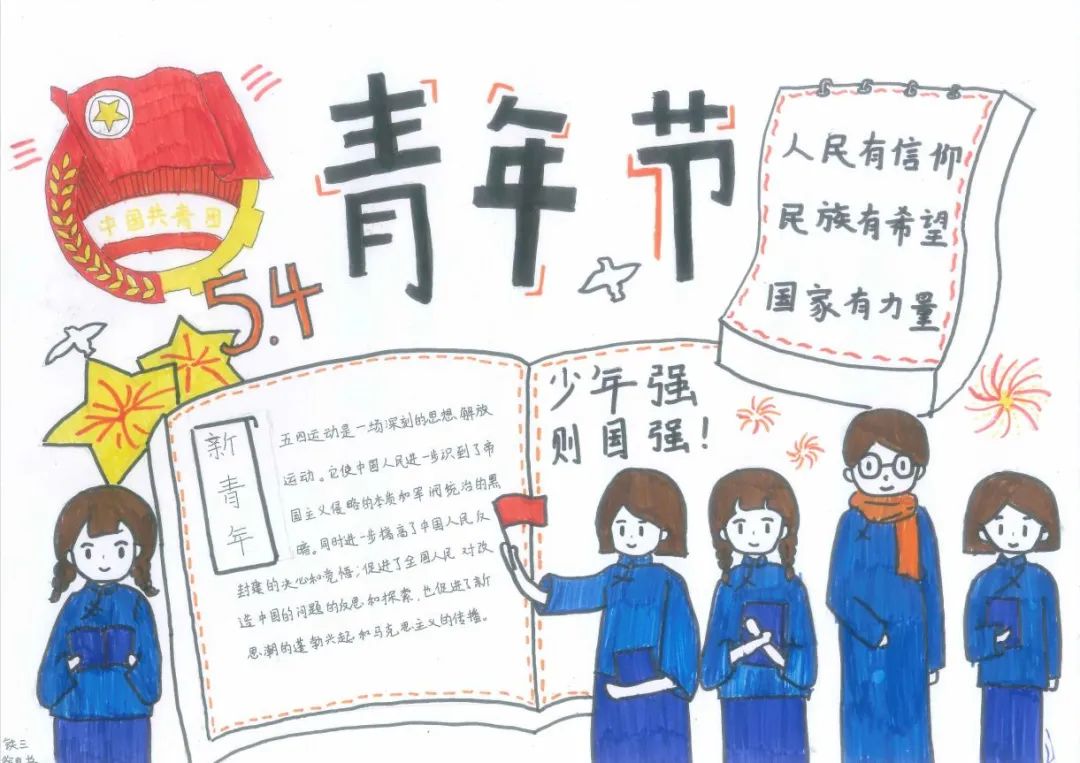 青年节
中国共青团
5.4
人民有信仰
民族有希望
国家有力量
少年强
则国强！
新青年
五四运动是一场深刻的思想解放
运动。它使中国人民进一步识到了帝
国主义侵略的本质和军阀统治的黑
暗。同时进一步提高了中国人民反
封建的决心和觉悟；促进了全国人民对改
造中国的问题的反思和探索，也促进了新
思潮的蓬勃兴起和马克思主义的传播。
铁三